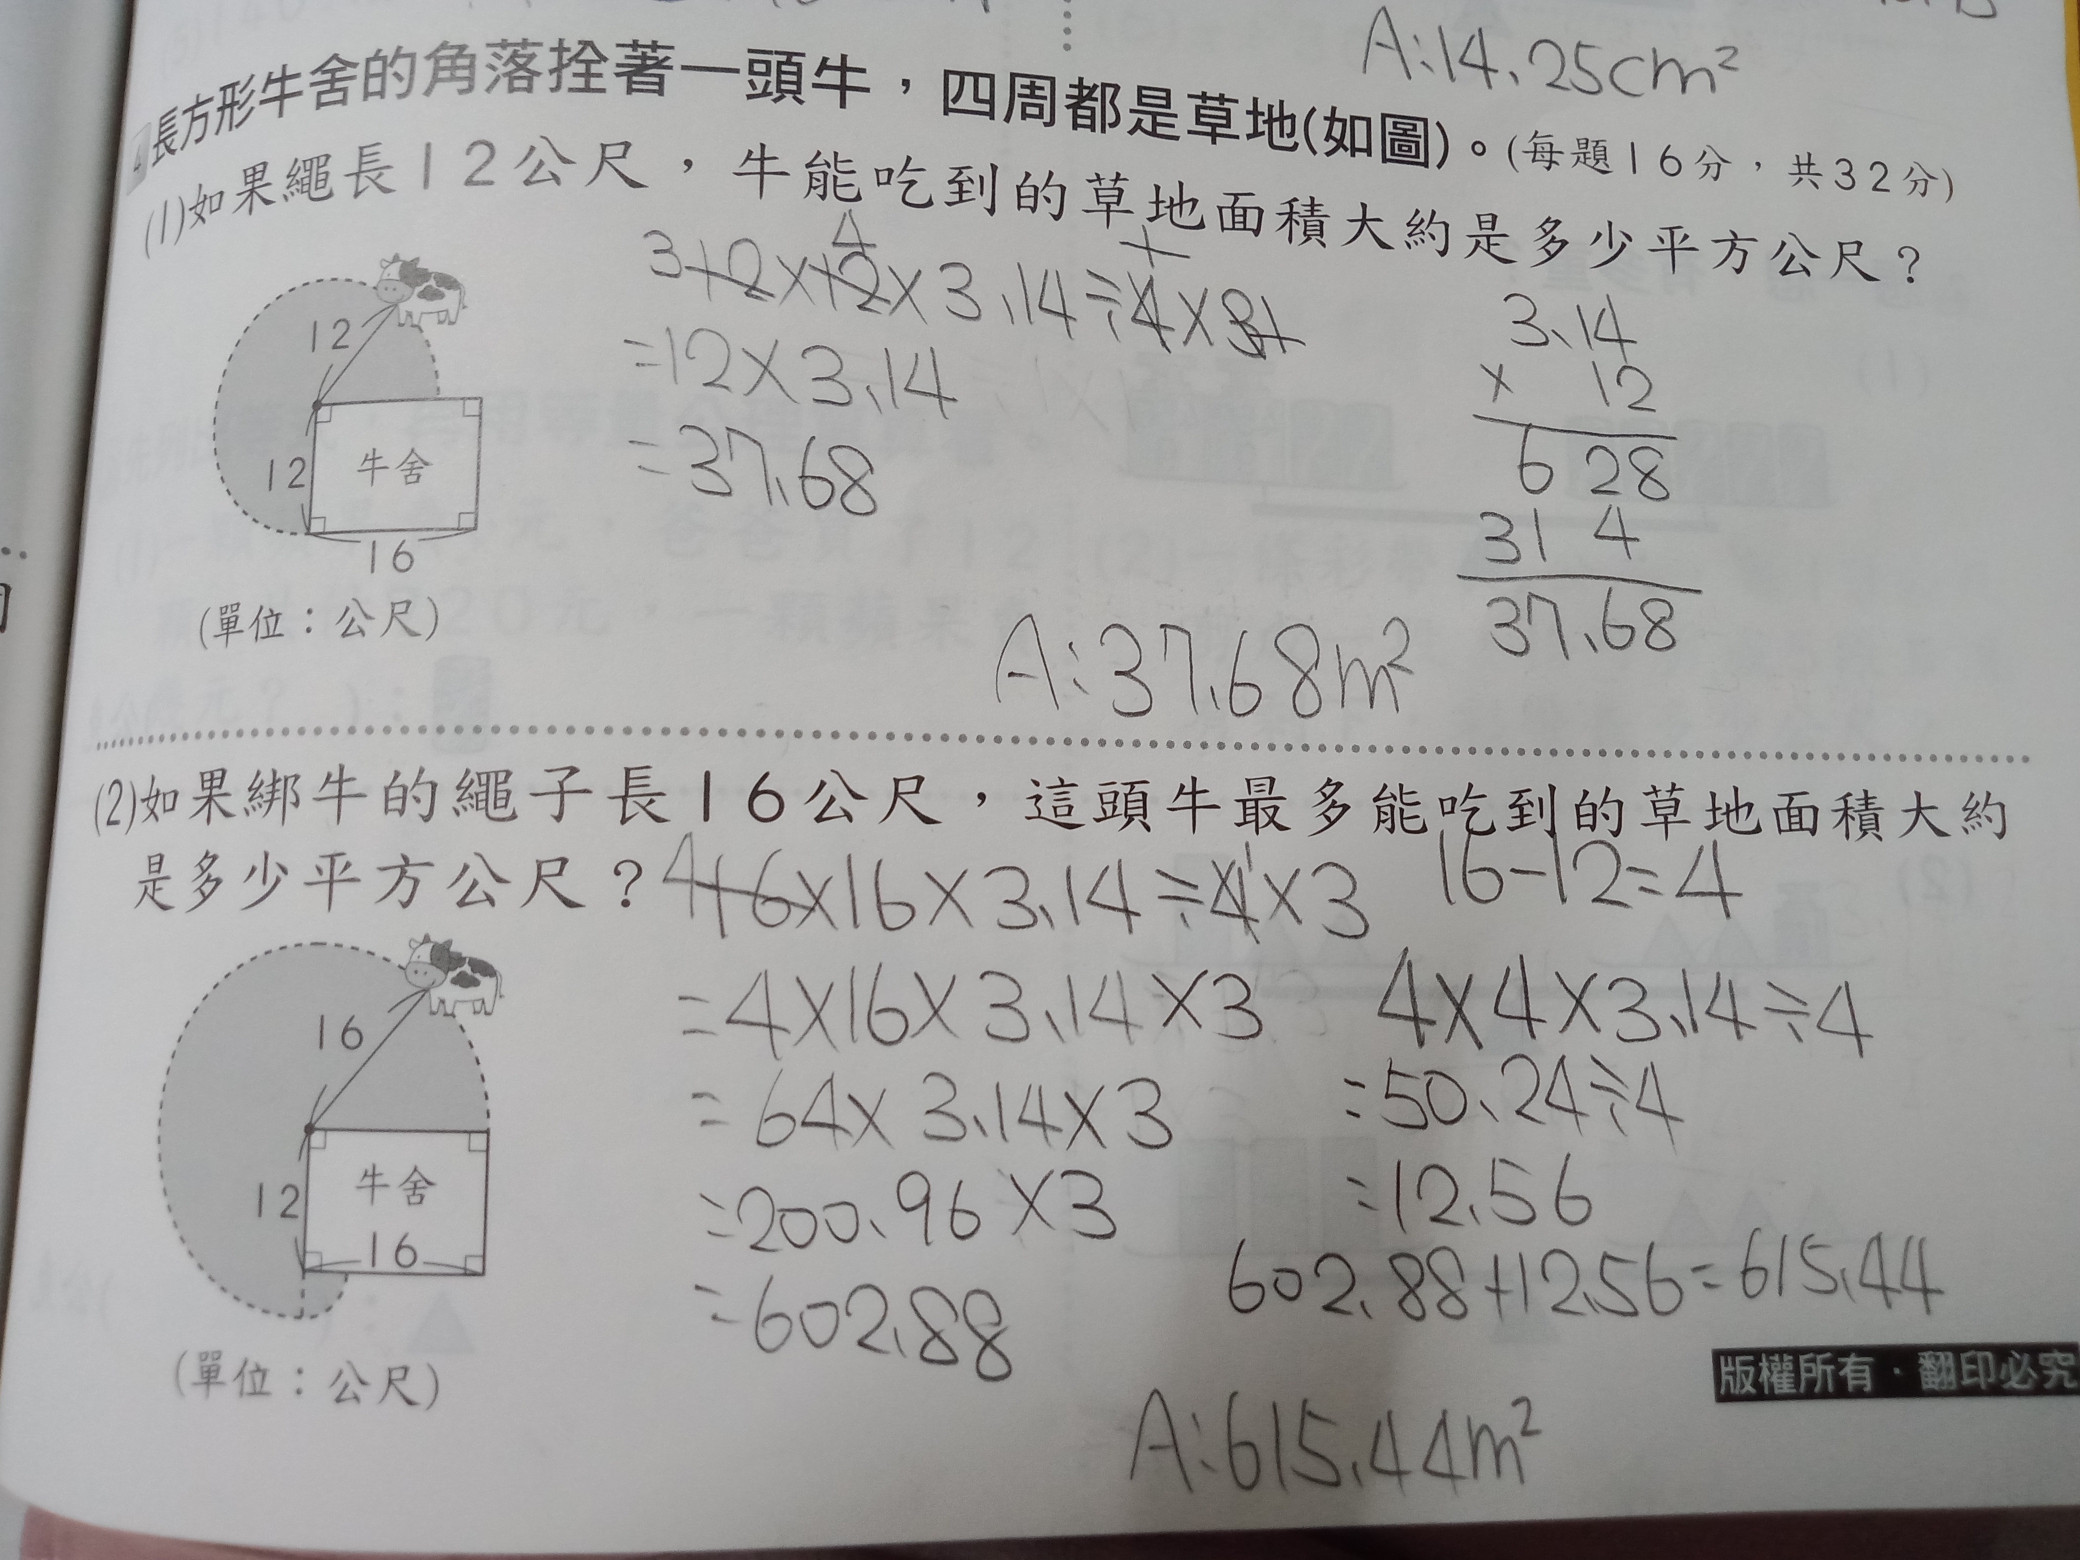 A:14.25cm²
4 長方形牛舍的角落拴著一頭牛，四周都是草地(如圖)。(每題16分，共32分)
(1)如果繩長12公尺，牛能吃到的草地面積大約是多少平方公尺？
12
12
牛舍
16
(單位：公尺)
3 4 1
12×12×3.14÷4×3
=12×3.14
=37.68
3.14
× 12
6 28
31 4
37.68
A:37.68m²
(2)如果綁牛的繩子長16公尺，這頭牛最多能吃到的草地面積大約
是多少平方公尺？
16
12
牛舍
16
(單位：公尺)
4 1
16×16×3.14÷4×3
=4×16×3.14×3
=64×3.14×3
=200.96×3
=602.88
16-12=4
4×4×3.14÷4
=50.24÷4
=12.56
602.88+12.56=615.44
A:615.44m²
版權所有·翻印必究